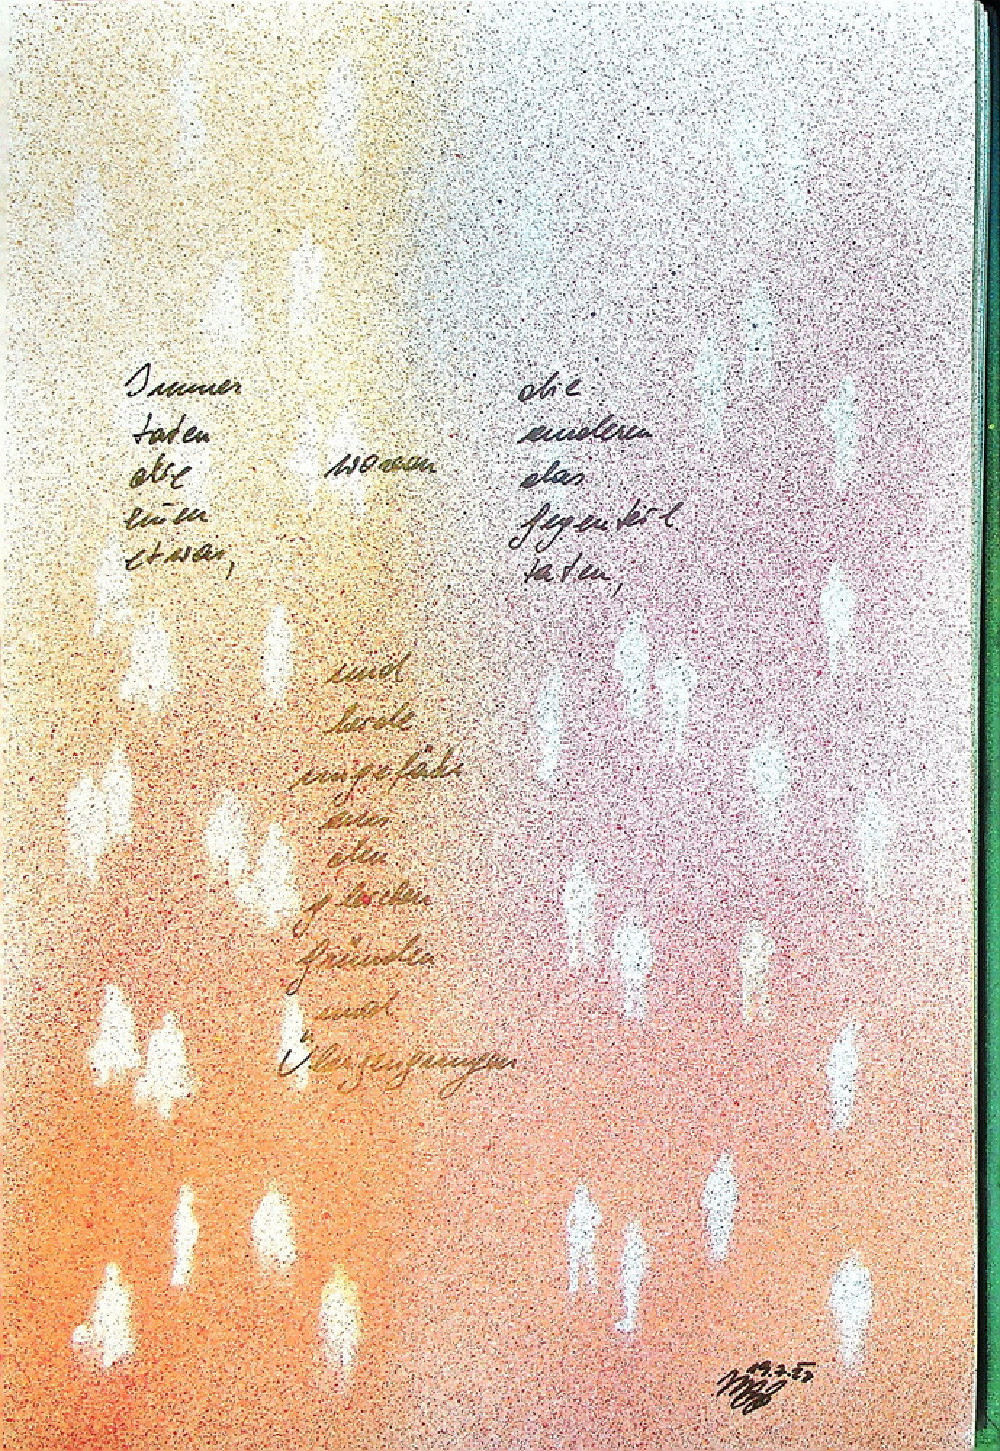 Immer
taten
die
einen
etwas,
waren
die
anderen
das
Gegenteil
taten,
und
beide
ungefähr
aus
den
gleichen
Gründen
und
Überzeugungen
19.7.87